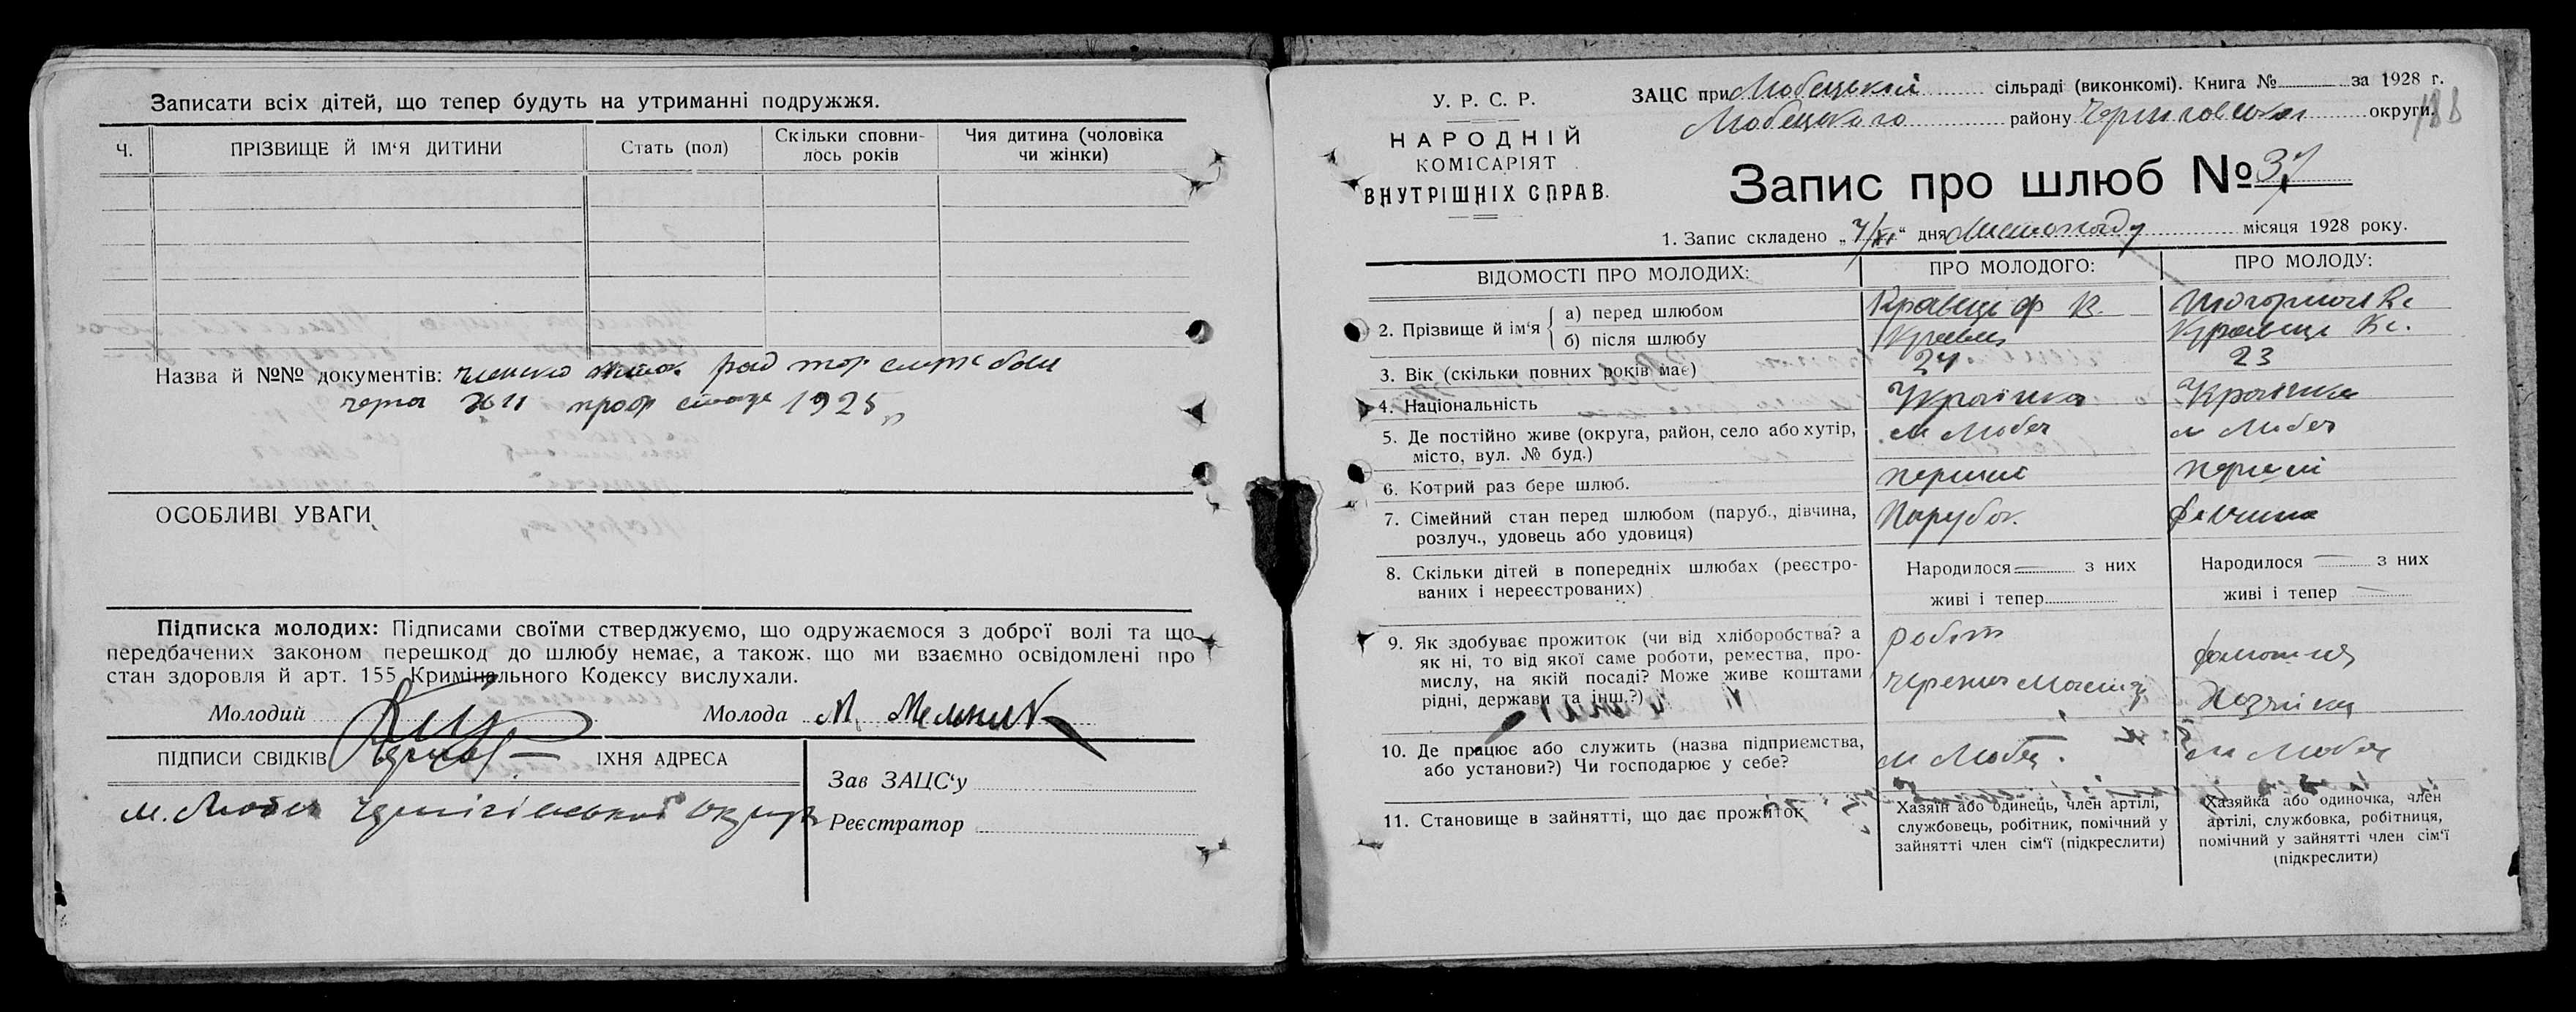 Записати всіх дітей, що тепер будуть на утриманні подружжя.
Ч.
ПРІЗВИЩЕ Й ІМ‘Я ДИТИНИ
Стать (пол)
Скільки сповни-
лось років
Чия дитина (чоловіка
чи жінки)
Назва й №№ документів:
1925
ОСОБЛИВІ УВАГИ
Підписка молодих: Підписами своїми стверджуємо, що одружаємося з доброї волі та що
передбачених законом перешкод до шлюбу немає, а також. що ми взаємно освідомлені про
стан здоровля й арт. 155 Кримінального Кодексу вислухали.
Молодий
Молода М. Мельник
ПІДПИСИ СВІДКІВ
ІХНЯ АДРЕСА
м. Любеч Чернігівської округи
Зав ЗАЦС‘у
Реєстратор
У. Р. С. Р.
НАРОДНІЙ
КОМІСАРІЯТ
ВНУТРІШНІХ СПРАВ.
ЗАЦС при Любецькій сільраді (виконкомі). Книга № за 1928 г.
Любецкого району округи.
188
Запис про шлюб № 37
1. Запис складено „7/XI“ дня Листопаду місяця 1928 року.
ВІДОМОСТІ ПРО МОЛОДИХ:
ПРО МОЛОДОГО:
ПРО МОЛОДУ:
2. Прізвище й ім‘я
а) перед шлюбом
б) після шлюбу
3. Вік (скільки повних років має) 23
4. Національність Українка Українка
5. Де постійно живе (округа, район, село або хутір,
місто, вул. № буд.)
м Любеч м Любеч
6. Котрий раз бере шлюб. перший перший
7. Сімейний стан перед шлюбом (паруб., дівчина,
розлуч., удовець або удовиця)
Парубок. дівчина
8. Скільки дітей в попередніх шлюбах (реєстро-
ваних і нереєстрованих)
Народилося — з них
живі і тепер
Народилося — з них
живі і тепер —
9. Як здобуває прожиток (чи від хліборобства? а
як ні, то від якої саме роботи, ремества, про-
мислу, на якій посаді? Може живе коштами
рідні, держави та інш.?)
10. Де працює або служить (назва підприємства,
або установи?) Чи господарює у себе?
м Любеч м Любеч
11. Становище в зайнятті, що дає прожиток
Хазяїн або одинець, член артілі,
службовець, робітник, помічний у
зайнятті член сім‘ї (підкреслити)
Хазяйка або одиночка, член
артілі, службовка, робітниця,
помічний у зайнятті член сім‘ї
(підкреслити)